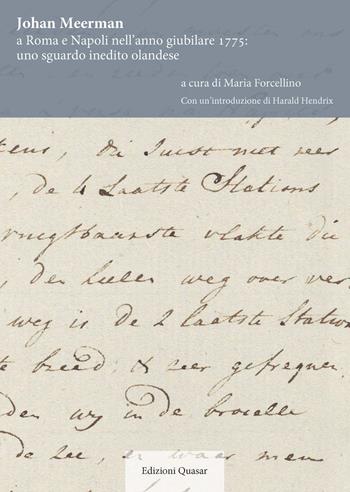 Johan Meerman
a Roma e Napoli nell'anno giubilare 1775:
uno sguardo inedito olandese
a cura di Maria Forcellino
Con un'introduzione di Harald Hendrix
die Juist niet zeer
de 4 Laatste Stations
vrugtbaarste vlakte die
den heelen weg over
weg is de 2 laatste Station
breed & zeer gefrequen
den weg in de
de Zee, en waar men
Edizioni Quasar